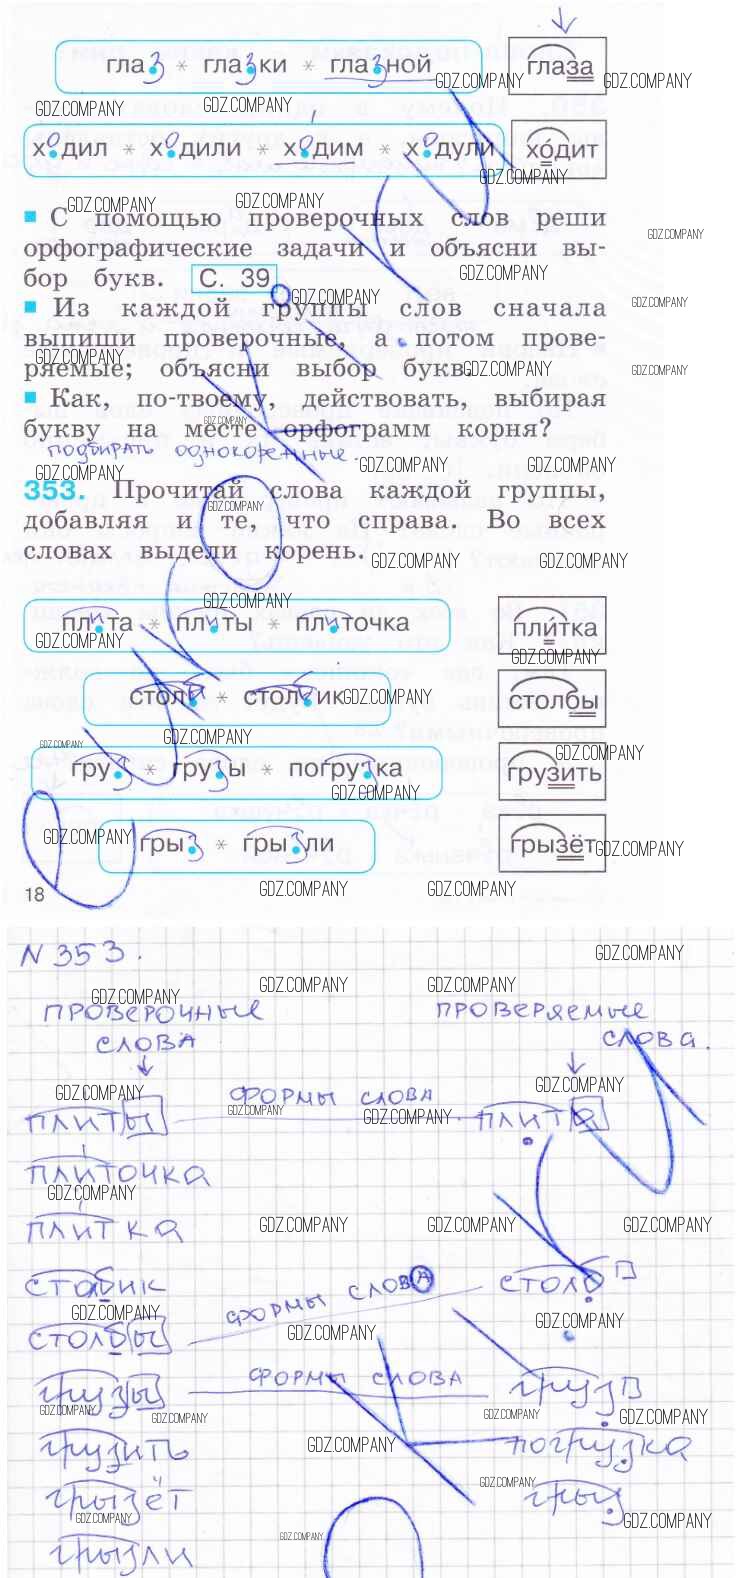 глаз * глазки * глазной глаза
ходил * ходили * ходим * ходули ходит
С помощью проверочных слов реши
орфографические задачи и объясни вы-
бор букв. С. 39
Из каждой группы слов сначала
выпиши проверочные, а потом прове-
ряемые; объясни выбор букв.
Как, по-твоему, действовать, выбирая
букву на месте орфограмм корня?
подбирать однокоренные.
353. Прочитай слова каждой группы,
добавляя и те, что справа. Во всех
словах выдели корень.
плита * плиты * плиточка плитка
столб * столбик столбы
груз * грузы * погрузка грузить
грыз * грызли грызёт
18
N 353.
проверочные проверяемые
слова слова.
плиты формы слова плита
плиточка
плитка
столбик формы слова столб
столбы
грузы формы слова груз
грузить погрузка
грызёт грыз
грызли
GDZ.COMPANY